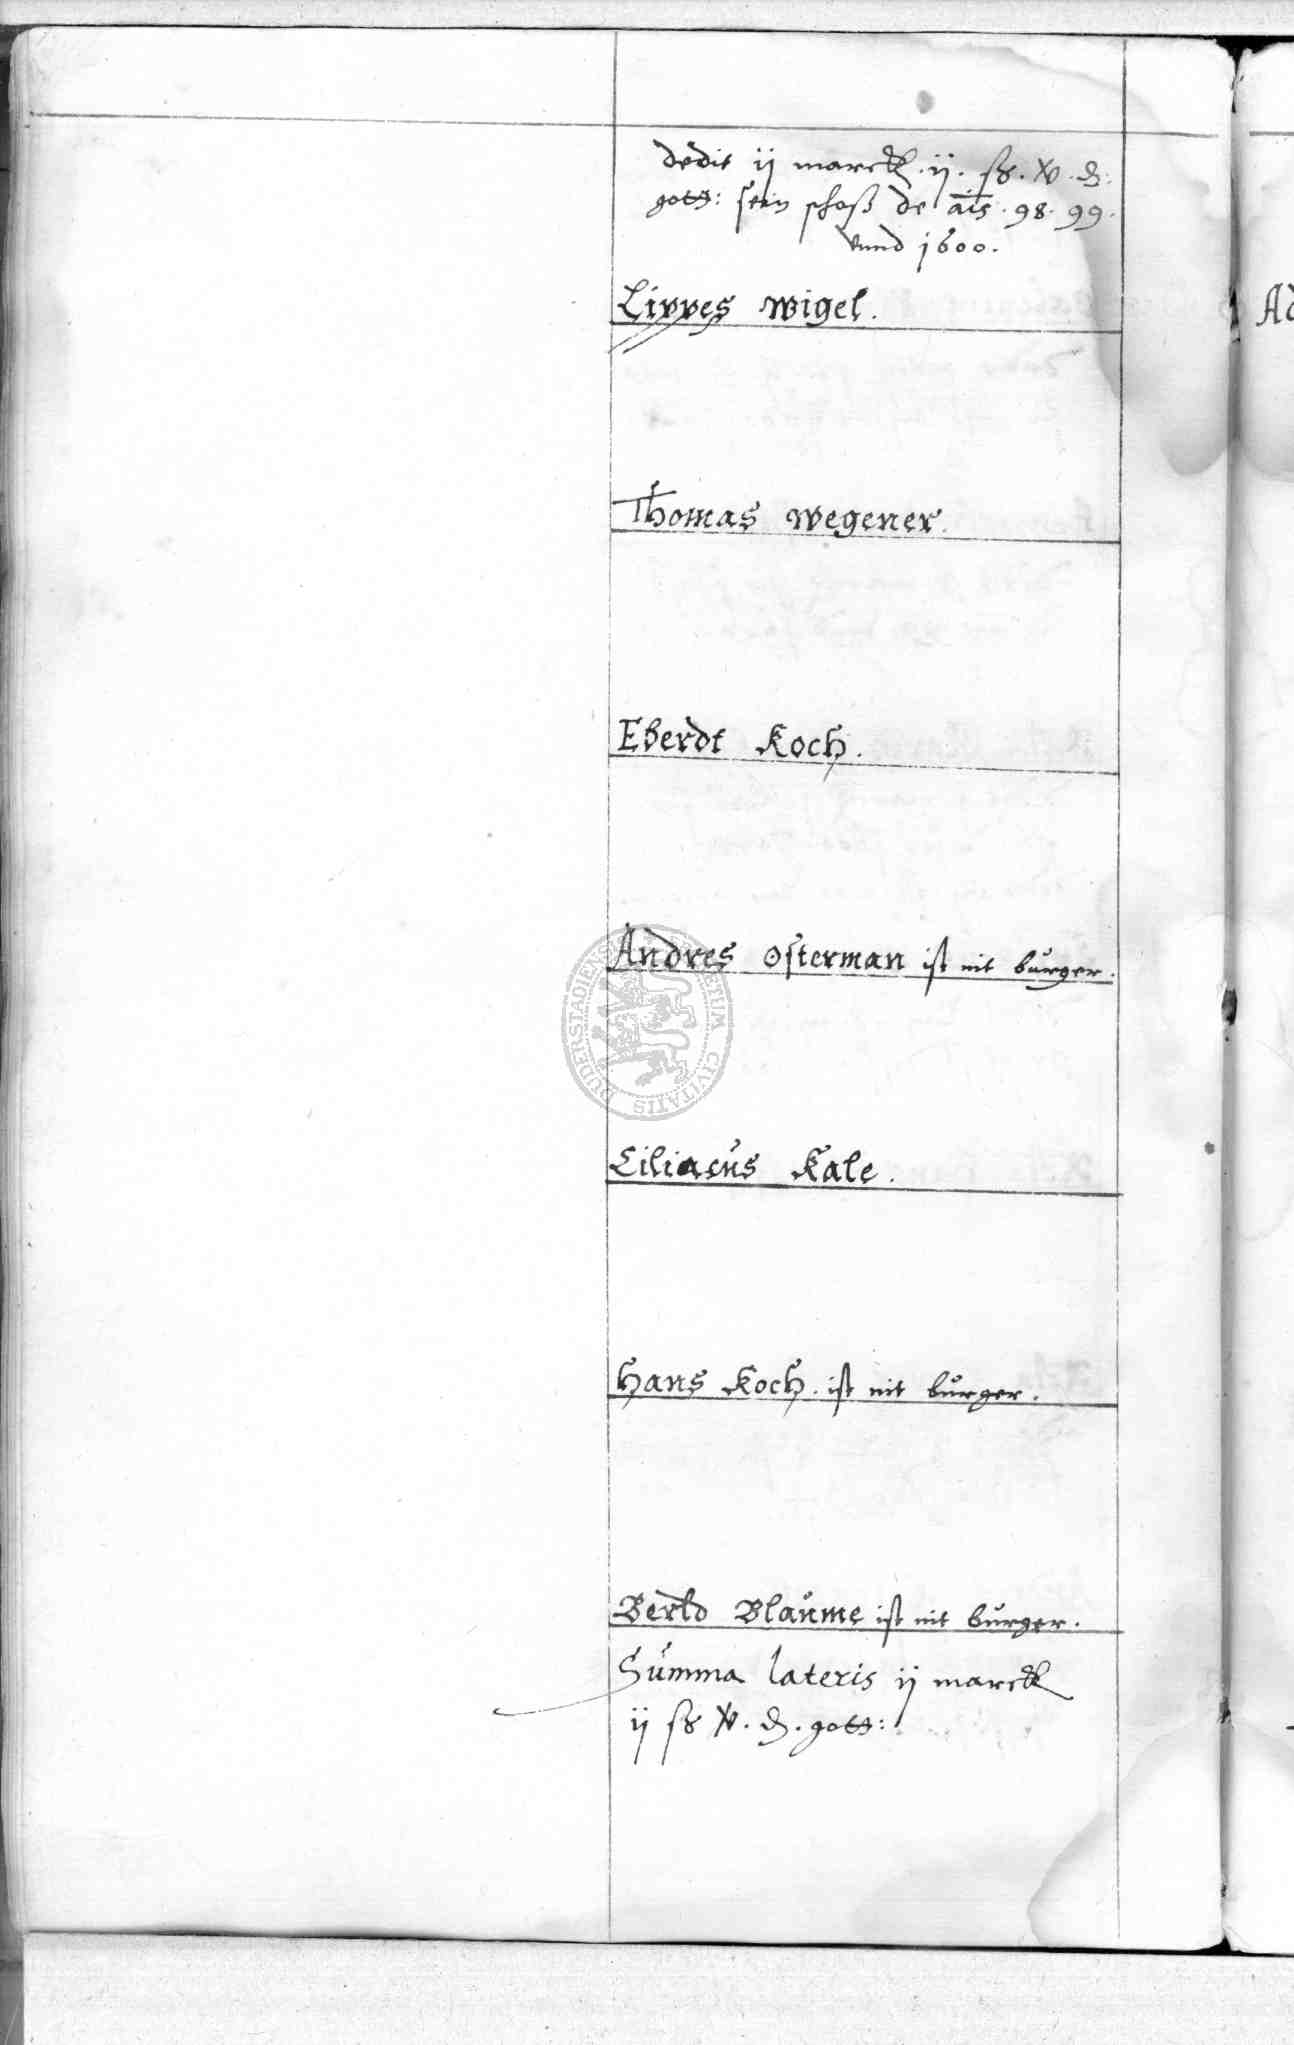 dedit ij marck . ij . ß . xv . ₰ .
gott: sein schoß de ais . 98 . 99 .
vnnd 1600 .
Lippes Wigel .
Thomas Wegener .
Eberdt Koch .
Andres Osterman ist nit bůrger .
Ciliacůs Kale .
Hans Koch . ist nit bůrger .
Bertld Blaůme ist nit bůrger .
Sůmma lateris ij marck
ij ß xv . ₰ . gott:
SIGILLUM BURGENSIUM
DUDERSTADIENSIS
CIVITATIS
Ad